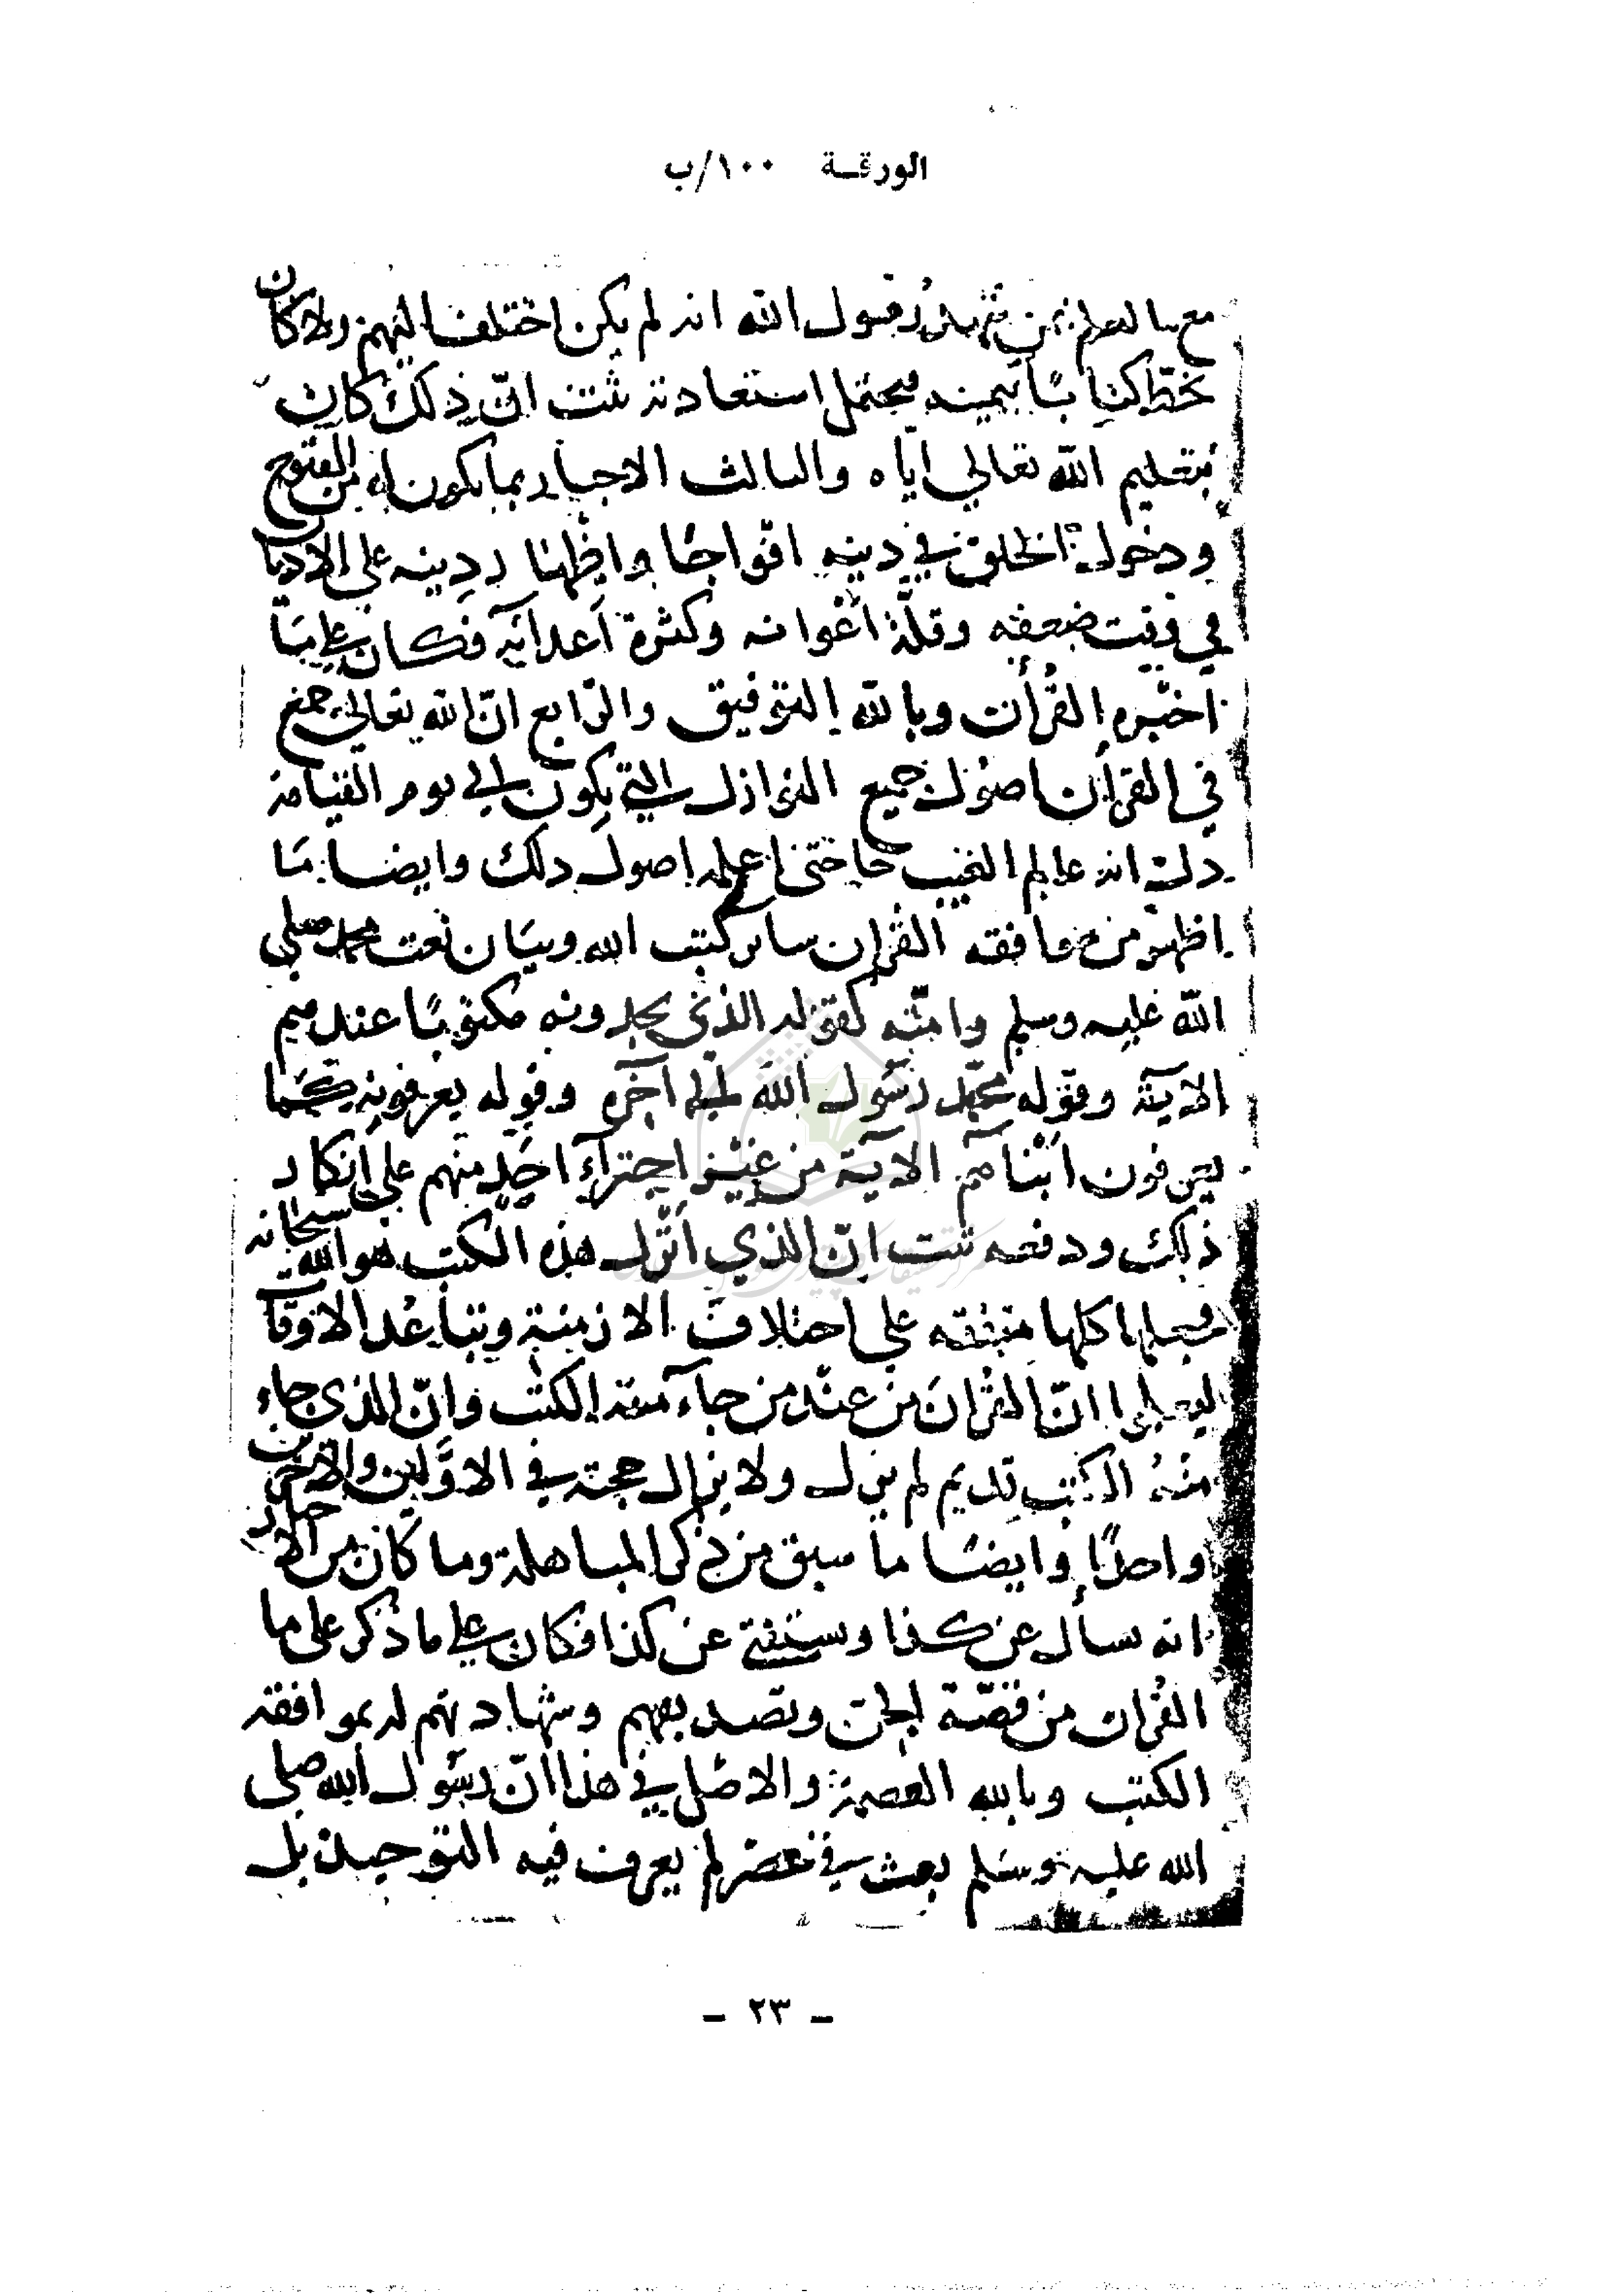 الورقة ١٠٠/ب
مع ما لعلم من شهد رسول الله انه لم يكن اختلف اليهم ولا كان
يخط كتابًا بيمينه فيحتمل استعادته ثبت انّ ذلك كان
بتعليم الله تعالى اياه والثالث الاخبار بما يكون له من الفتوح
ودخول الخلق في دينه افواجًا واظهار دينه على الاديان
في وقت ضعفه وقلة أعوانه وكثرة أعدائه فكان على ما
اخبره القرآن وبالله التوفيق والرّابع انّ الله تعالى جمع
في القرآن اصول جميع النوازل التي يكون الى يوم القيامة
دل انه عالم الغيب حتى اعلمه اصول ذلك وايضا ما
اظهر من موافقه القرآن سائر كتب الله وبيان نعت محمد صلى
الله عليه وسلم وامته كقوله الذي يجدونه مكتوبًا عندهم
الآية وقوله محمّد رسول الله الى آخره وقوله يعرفونه كما
يعرفون أبنآءهم الآية من غير اجتراء احدٍ منهم على انكار
ذلك ودفعه ثبت انّ الذي انزل هذه الكتب هو الله سبحانه
فجعلها كلها متفقه على اختلاف الازمنة وتباعد الاوقات
ليعلموا انّ القرآن من عند من جاء منه الكتب وانّ الذي جاء
منه الكتب قديم لم يزل ولا يزال حجته في الاوّلين والآخرين
واحدًا وايضًا ما سبق من ذكر المباهلة وما كان من الاخبار
انه يسأل عن كذا ويستفتى عن كذا فكان على ما ذكر على ما
القرآن من قصّة الجن وتصديقهم وشهادتهم له بموافقة
الكتب وبالله العصمة والاصل في هذا انّ رسول الله صلى
الله عليه وسلم بعث في عصر لم يعرف فيه التوحيد بل
– ٢٣ –